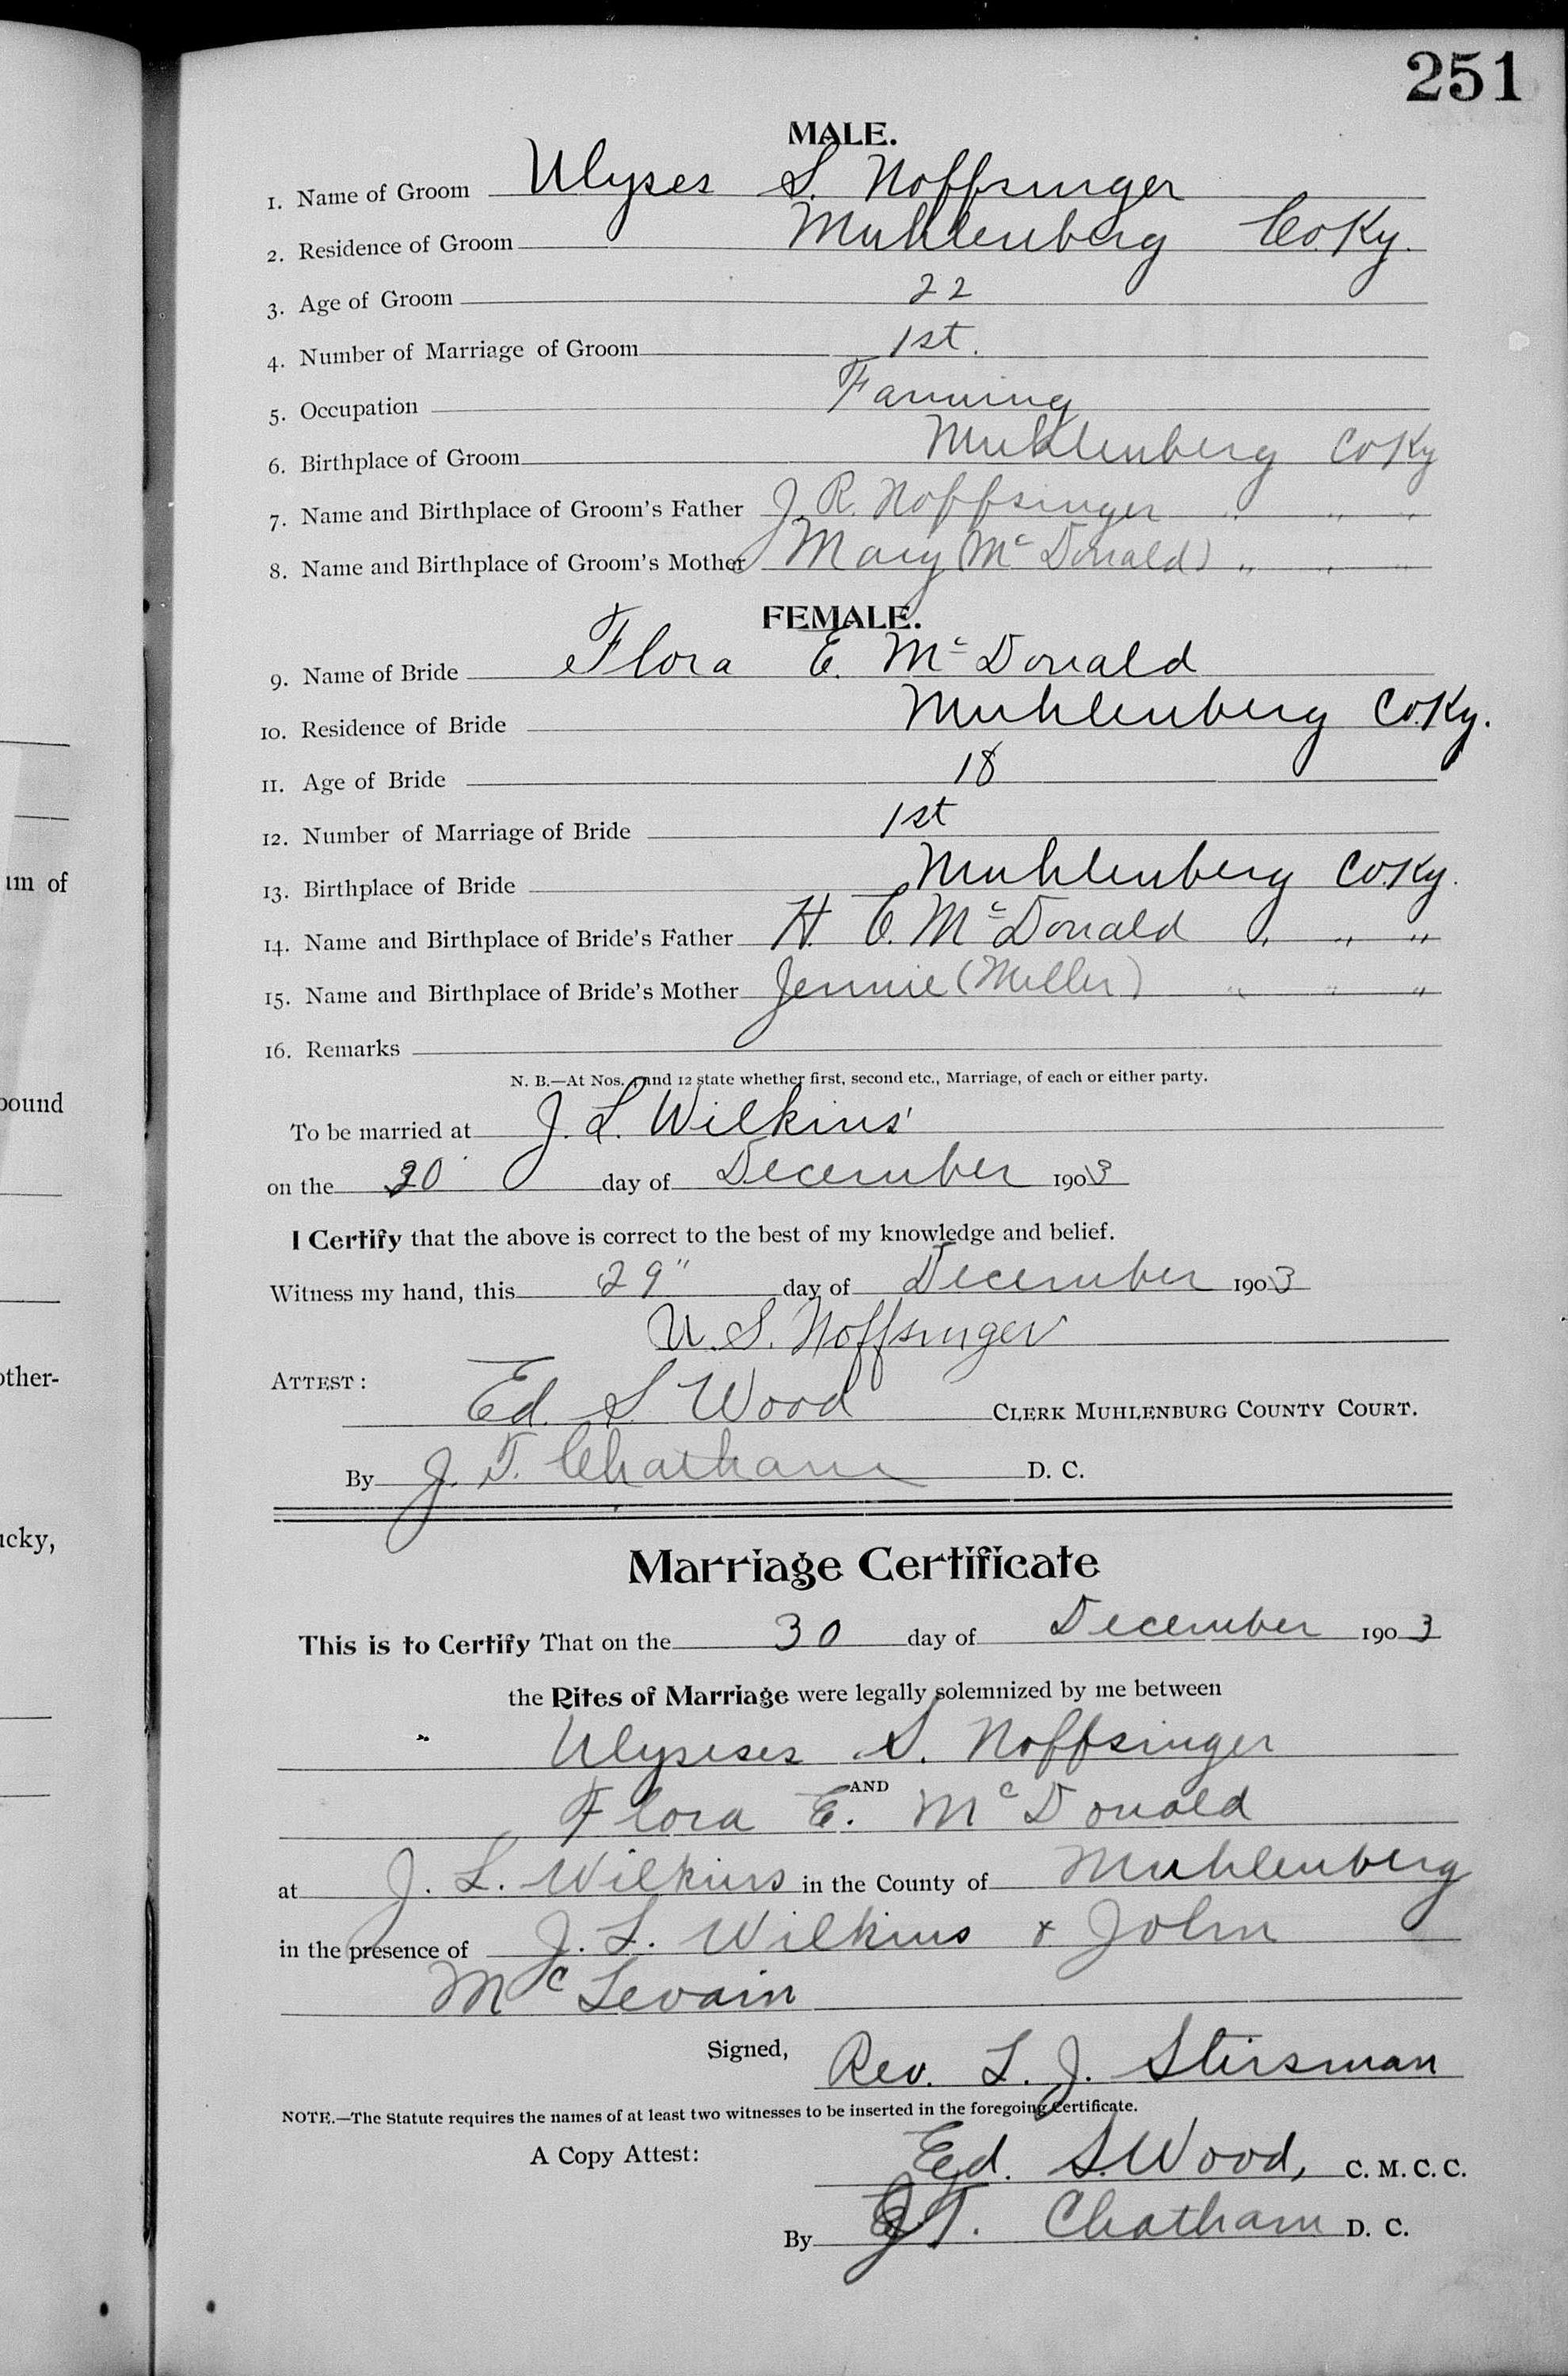 251
MALE.
1. Name of Groom Ulyses S. Noffsinger
2. Residence of Groom Muhlenberg Co. Ky.
3. Age of Groom 22
4. Number of Marriage of Groom 1st.
5. Occupation Farming
6. Birthplace of Groom Muhlenberg Co Ky
7. Name and Birthplace of Groom's Father J. R. Noffsinger " " "
8. Name and Birthplace of Groom's Mother Mary (Mc Donald) " " "
FEMALE.
9. Name of Bride Flora E. Mc Donald
10. Residence of Bride Muhlenberg Co. Ky.
11. Age of Bride 18
12. Number of Marriage of Bride 1st
13. Birthplace of Bride Muhlenberg Co. Ky.
14. Name and Birthplace of Bride's Father H. E. Mc Donald " " "
15. Name and Birthplace of Bride's Mother Jennie (Miller) " " "
16. Remarks
N. B.—At Nos. 4 and 12 state whether first, second etc., Marriage, of each or either party.
To be married at J. L. Wilkins'
on the 30 day of December 1903
I Certify that the above is correct to the best of my knowledge and belief.
Witness my hand, this 29" day of December 1903
U. S. Noffsinger
ATTEST:
Ed. S. Wood CLERK MUHLENBURG COUNTY COURT.
By J. T. Chatham D. C.
Marriage Certificate
This is to Certify That on the 30 day of December 1903
the Rites of Marriage were legally solemnized by me between
Ulysises S. Noffsinger
AND
Flora E. Mc Donald
at J. L. Wilkins in the County of Muhlenberg
in the presence of J. L. Wilkins & John
Mc Levain
Signed, Rev. L. J. Stirsman
NOTE.—The Statute requires the names of at least two witnesses to be inserted in the foregoing Certificate.
A Copy Attest: Ed. S. Wood, C. M. C. C.
By J. T. Chatham D. C.
um of
pound
other-
ucky,